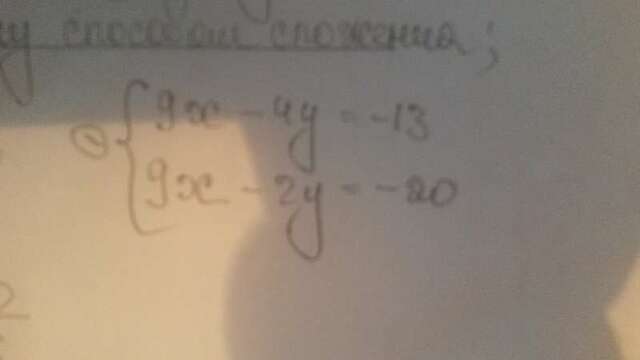 способом сложения;
9x - 4y = -13
9x - 2y = -20
2